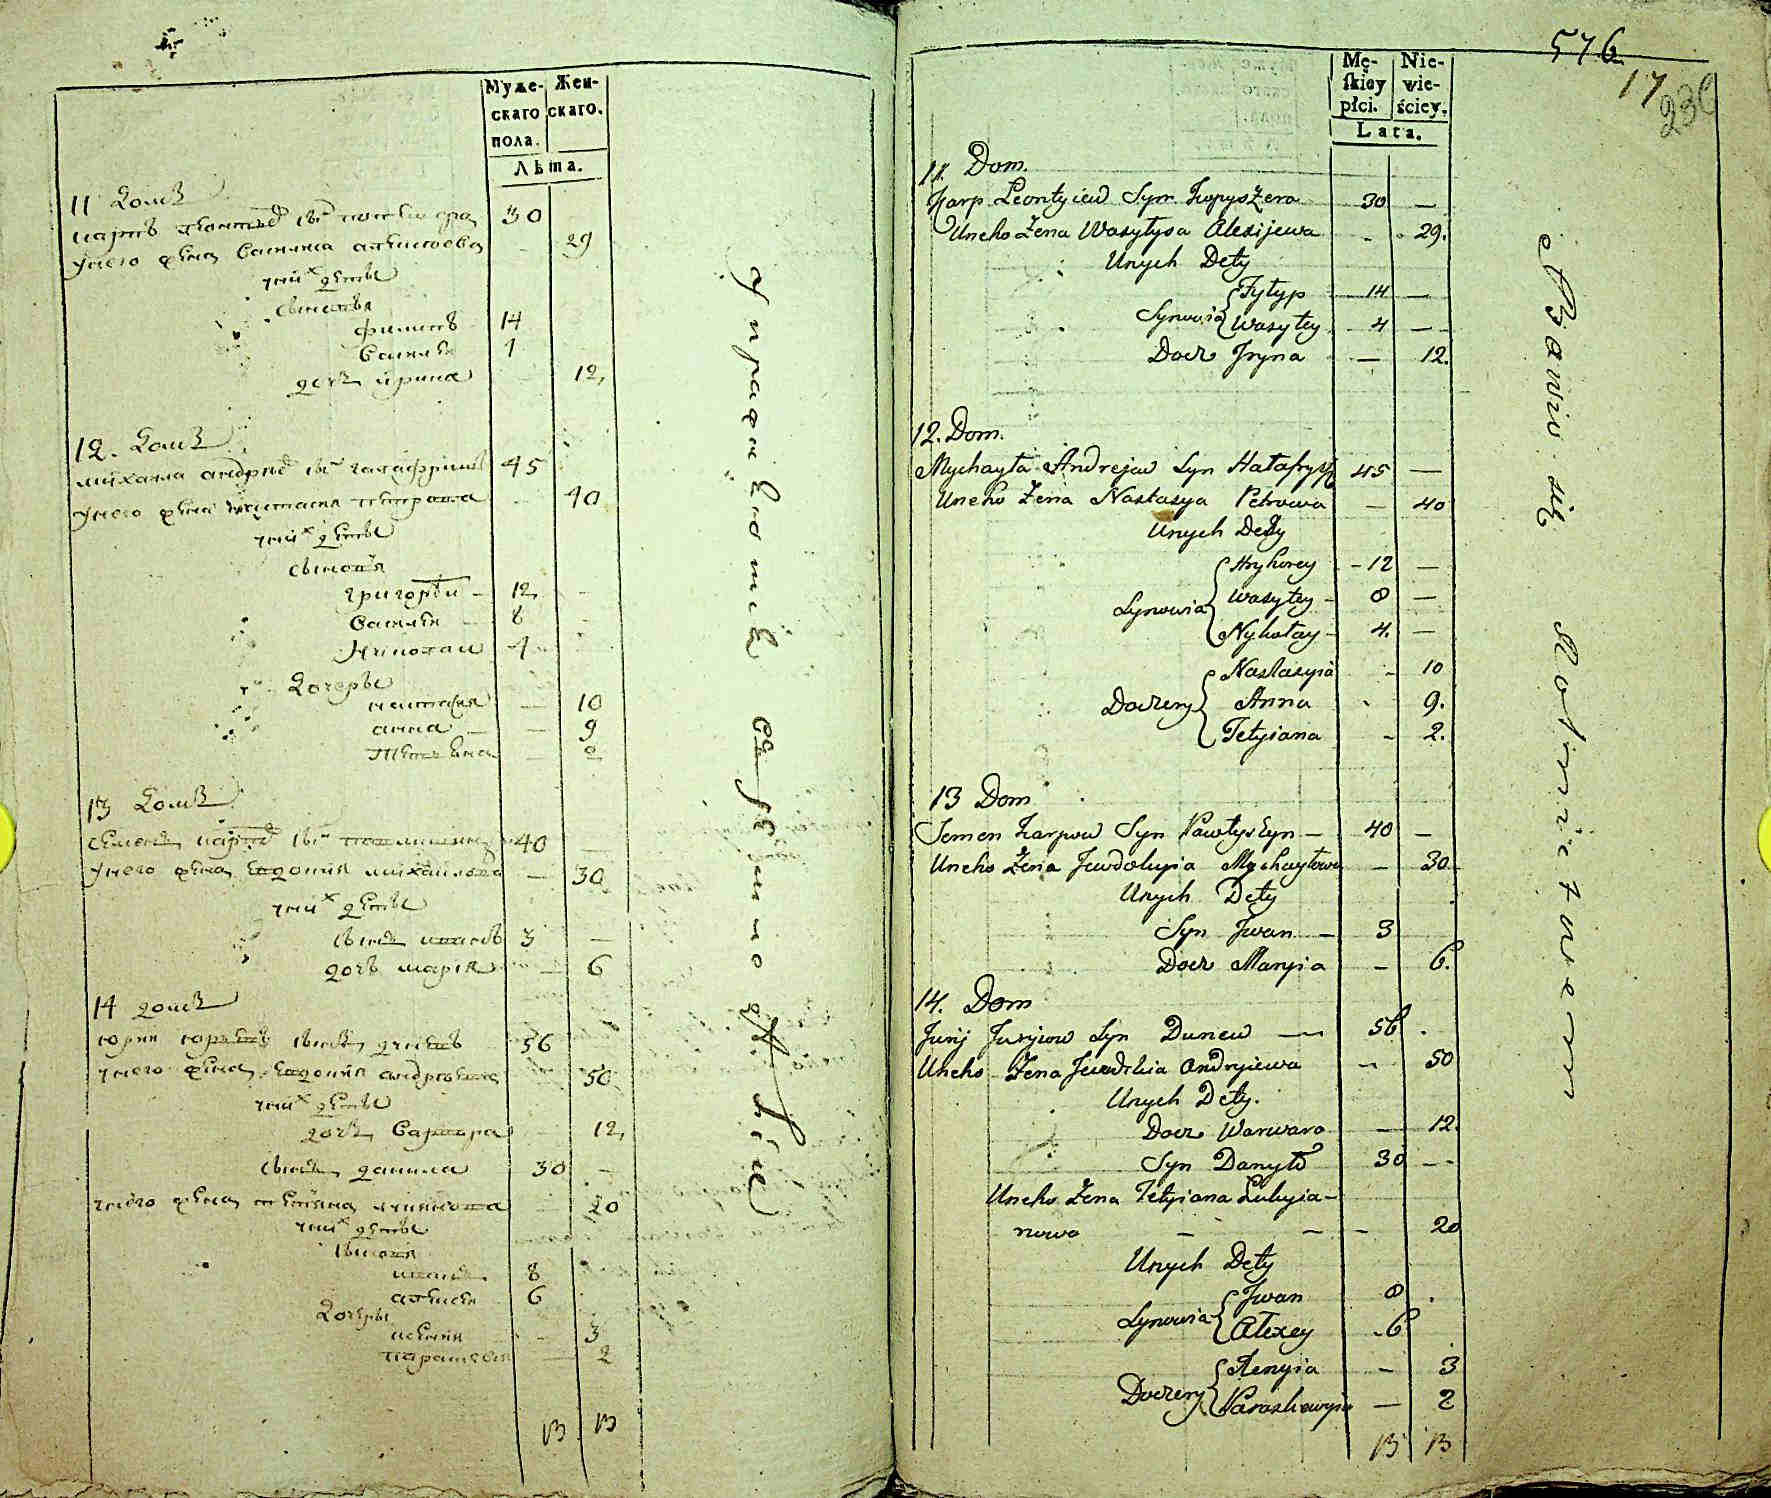 Муже-
скаго
пола.
Жен-
скаго.
Лѣта.
11 Домъ
30
унего жена Василиса Алексѣева 29
уних дѣти
сыновья
Филипъ 14
Василей 4
дочь Ирина 12
12. Домъ
Михайла Андреевъ сын 45
унего жена Настасия Петрова - 40
уних дѣти
сыновья
Григорей - 12 -
Василей - 8 -
Николай 4 -
Дочери
Настасия - 10
Анна - 9
Тетьяна - 2
13 Домъ
Семенъ Карповъ сын 40 -
унего жена Евдокия Михайлова - 30
уних дѣти
сынъ Иванъ 3 -
дочь Мария - 6
14 домъ
Юрий Юрьевъ сынъ Дуневъ 56
унего жена Евдокия Андрѣева 50
уних дѣти
дочь Варвара 12
сынъ Данила 30 -
унего жена Тетьяна Лукянова 20
уних дѣти
сыновья
Иванъ 8
Алексей 6
Дочери
Ксения - 3
Парасковия - 2
13 13
Упражняютца въ землепашестве
576
17
236
Mę-
skiey
płci.
Nie-
wie-
ściey.
Lata.
11. Dom.
Karp Leontyiew Syn 30 —
Uneho Żena Wasyłysa Alexijewa - - 29.
Unych Dety
Synowia { Fyłyp 14 —
Wasyłey - 4 —
Docz Iryna — 12.
12. Dom.
Mychayła Andrejew Syn 45 —
Uneho Żena Nastasya Petrowa — 40
Unych Dety
Synowia { Hryhorey - 12 —
Wasyłey - 8 —
Nykołay - 4. —
Doczery { Nastasyia - 10
Anna - 9.
Tetyiana - 2.
13 Dom
Semen Karpow Syn Pawłyszyn — 40 —
Uneho Żena Jewdokyia Mychayłowa — 30
Unych Dety
Syn Jwan — 3
Docz Maryia - 6.
14. Dom
Jurij Juryiow Syn Dunew — 56 .
Uneho Żena Jewdokia Andryiewa — 50
Unych Dety.
Docz Warwara — 12.
Syn Danyło 30 —
Uneho Żena Tetyiana Łukyia-
nowa - - - 20
Unych Dety
Synowia { Jwan 8 .
Alexey - 6
Doczery { Xenyia - 3
Paraskewyia — 2
13 13
Bawio się Rolnictwem